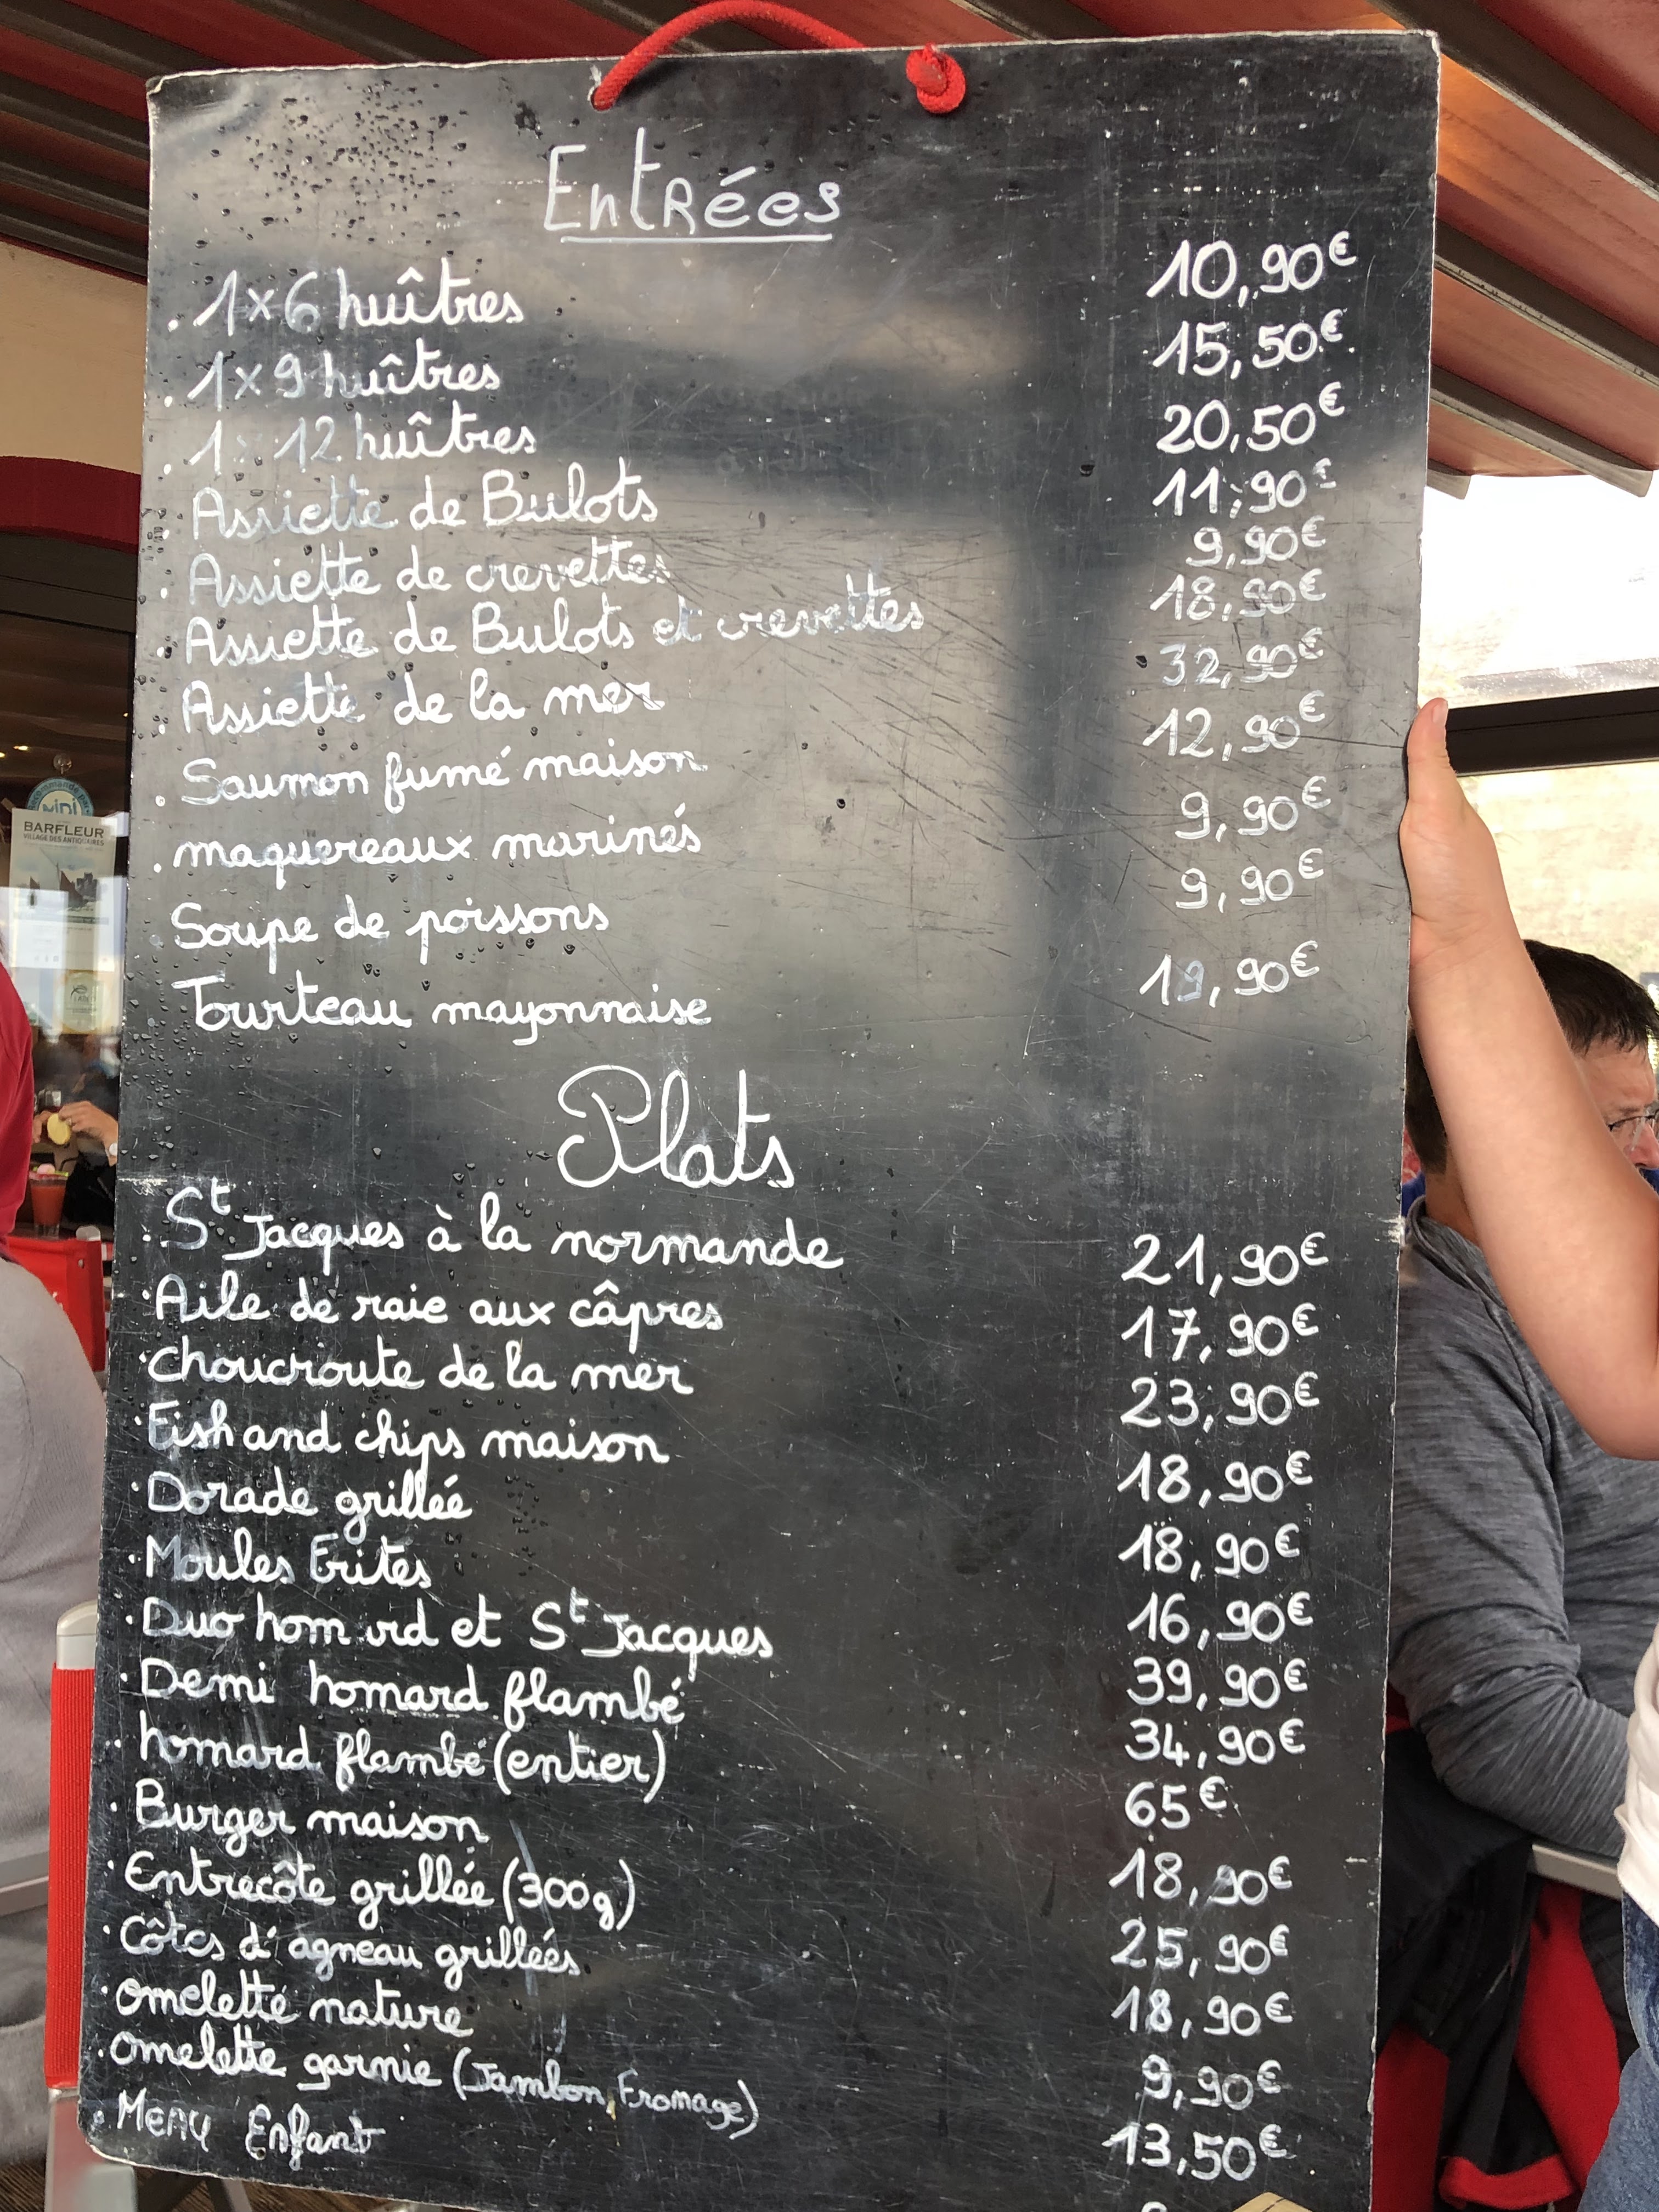 Entrées
. 1x6 huîtres 10,90€
. 1x9 huîtres 15,50€
. 1x12 huîtres 20,50€
. Assiette de Bulots 11,90€
. Assiette de crevettes 9,90€
. Assiette de Bulots et crevettes 18,90€
. Assiette de la mer 32,90€
. Saumon fumé maison 12,90€
. maquereaux marinés 9,90€
. Soupe de poissons 9,90€
Tourteau mayonnaise 19,90€
Plats
. St Jacques à la normande 21,90€
. Aile de raie aux câpres 17,90€
. choucroute de la mer 23,90€
. Fish and chips maison 18,90€
. Dorade grillée 18,90€
. Moules Frites 16,90€
. Duo homard et St Jacques 39,90€
. Demi homard flambé 34,90€
. homard flambé (entier) 65€
. Burger maison 18,90€
. Entrecôte grillée (300g) 25,90€
. Côtes d'agneau grillées 18,90€
. omelette nature 9,90€
. omelette garnie (Jambon, Fromage) 13,50€
. Menu Enfant
BARFLEUR
VILLAGE DES ANTIQUAIRES